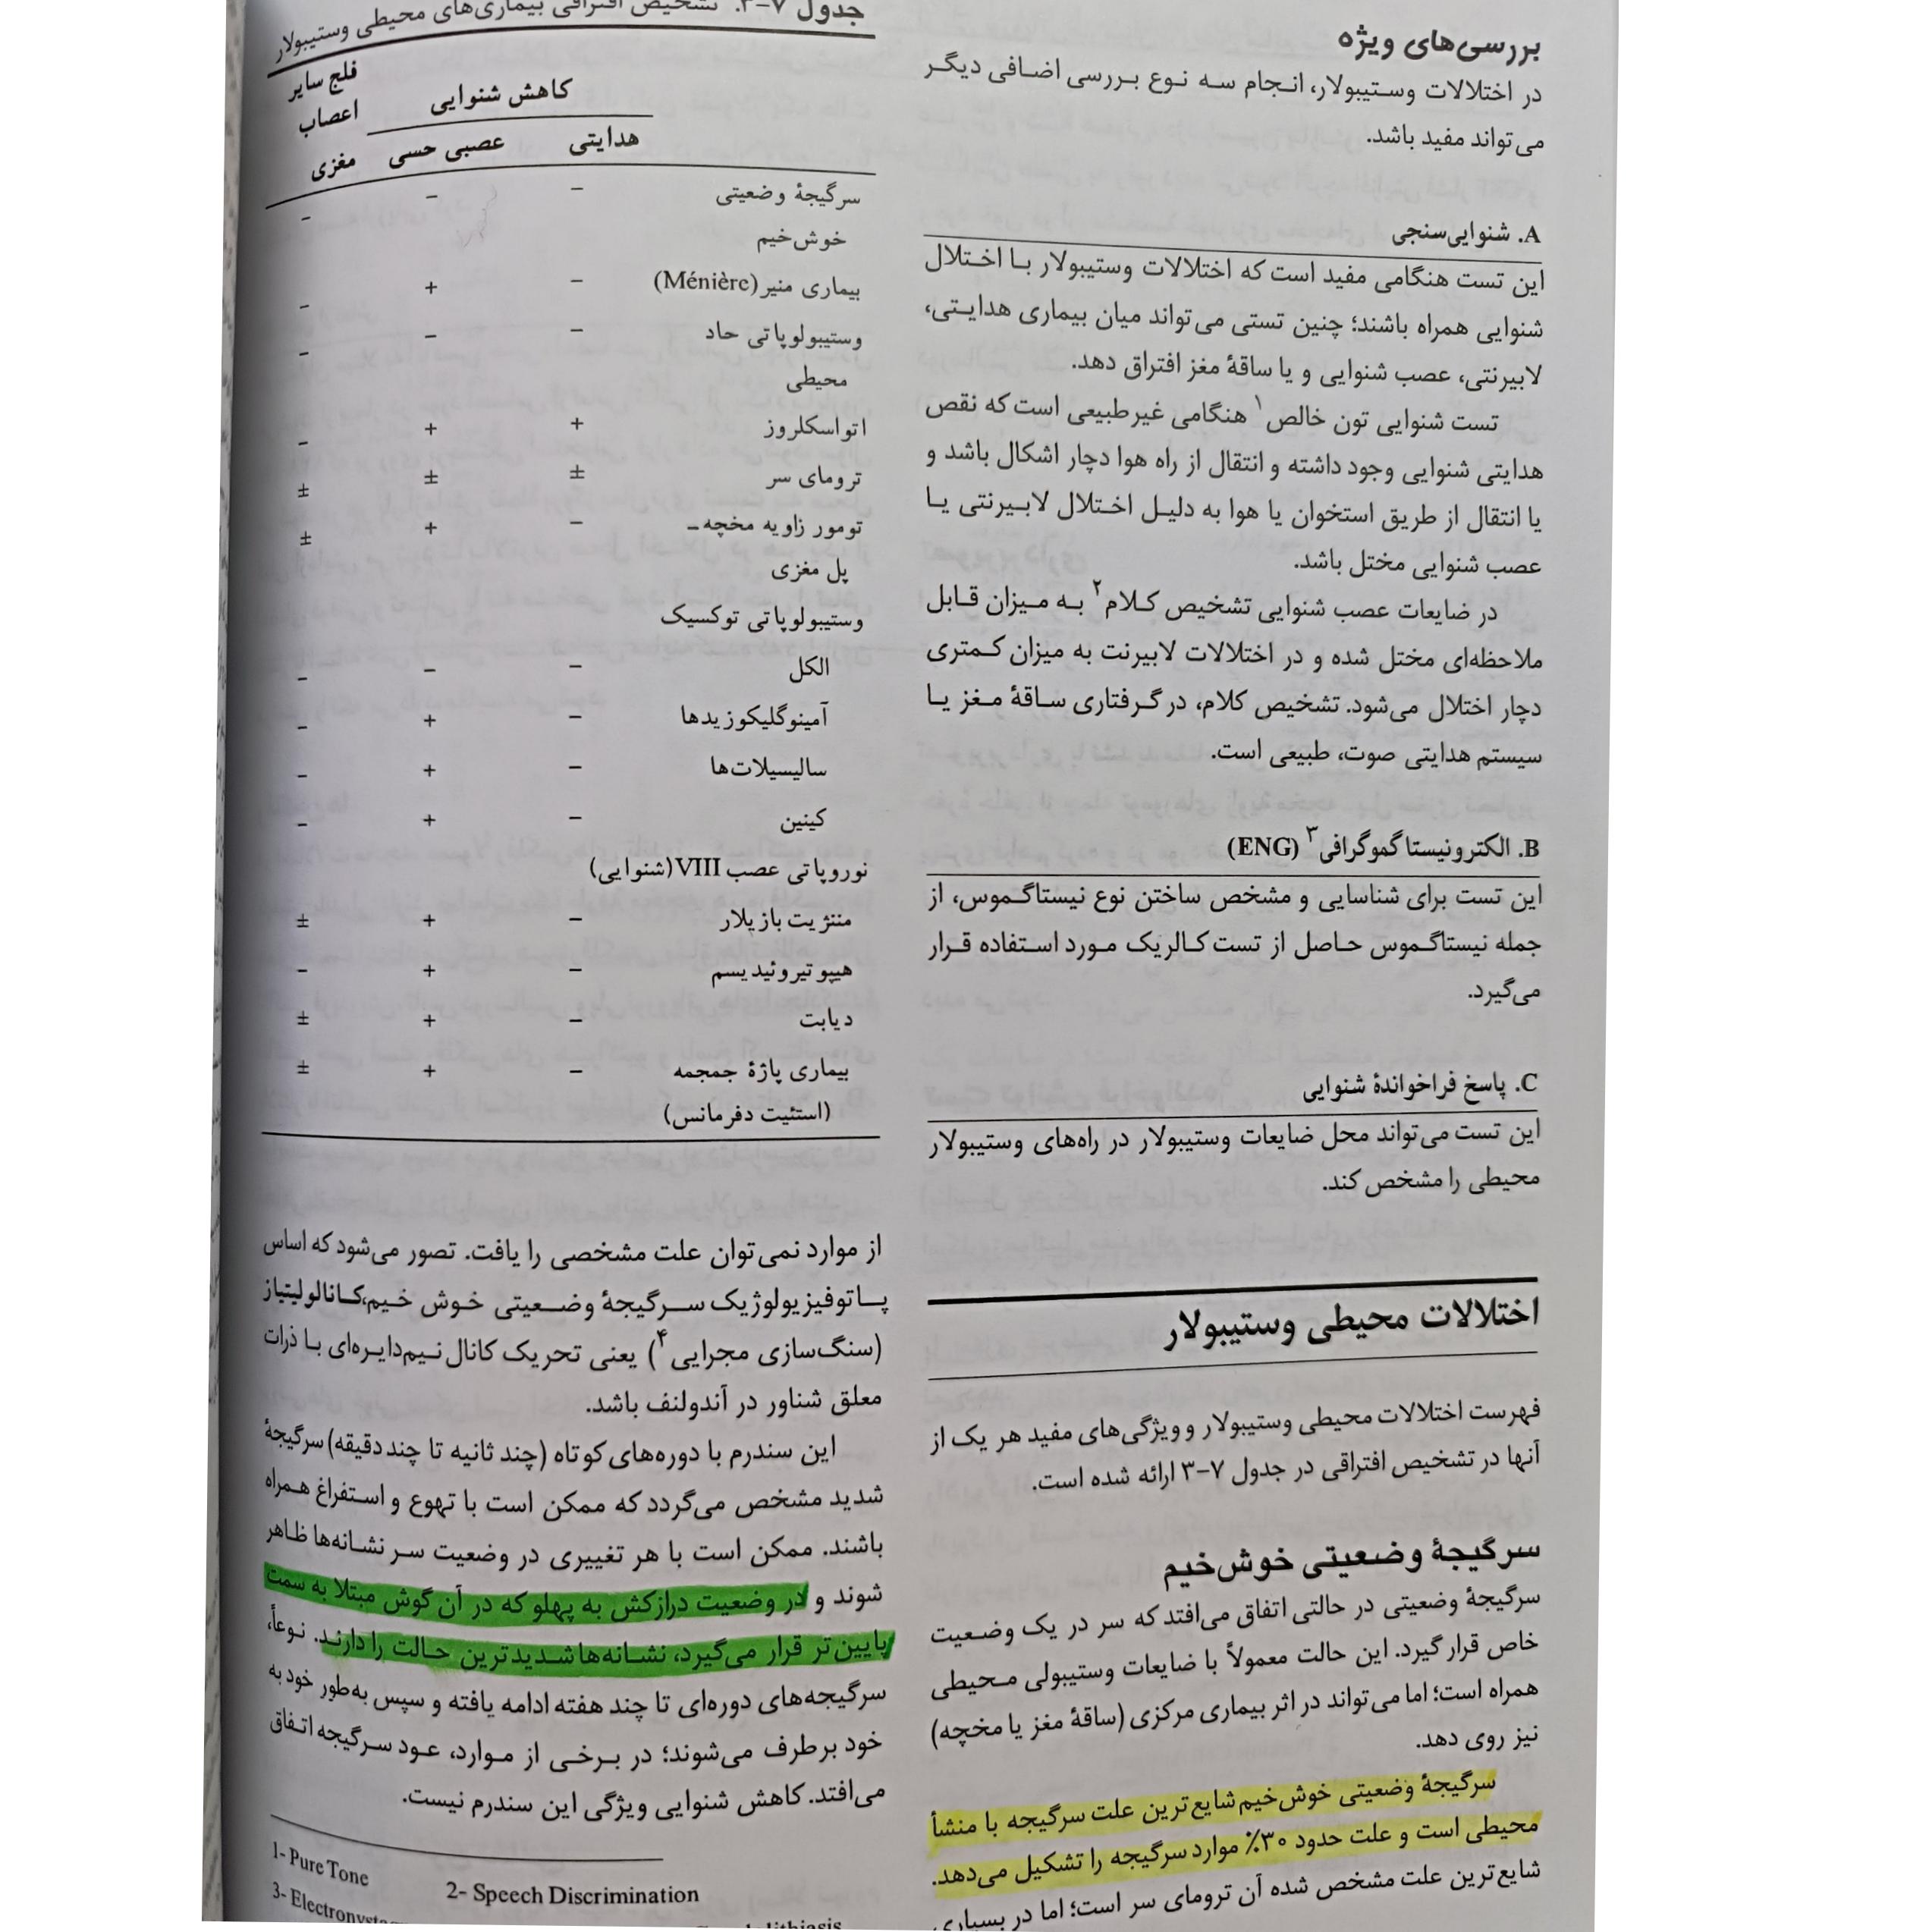 بررسی‌های ویژه
در اختلالات وستیبولار، انجام سه نوع بررسی اضافی دیگر
می‌تواند مفید باشد.
A. شنوایی‌سنجی
این تست هنگامی مفید است که اختلالات وستیبولار با اختلال
شنوایی همراه باشند؛ چنین تستی می‌تواند میان بیماری هدایتی،
لابیرنتی، عصب شنوایی و یا ساقهٔ مغز افتراق دهد.
تست شنوایی تون خالص۱ هنگامی غیرطبیعی است که نقص
هدایتی شنوایی وجود داشته و انتقال از راه هوا دچار اشکال باشد و
یا انتقال از طریق استخوان یا هوا به دلیل اختلال لابیرنتی یا
عصب شنوایی مختل باشد.
در ضایعات عصب شنوایی تشخیص کلام۲ به میزان قابل
ملاحظه‌ای مختل شده و در اختلالات لابیرنت به میزان کمتری
دچار اختلال می‌شود. تشخیص کلام، در گرفتاری ساقهٔ مغز یا
سیستم هدایتی صوت، طبیعی است.
B. الکترونیستاگموگرافی۳ (ENG)
این تست برای شناسایی و مشخص ساختن نوع نیستاگموس، از
جمله نیستاگموس حاصل از تست کالریک مورد استفاده قرار
می‌گیرد.
C. پاسخ فراخواندهٔ شنوایی
این تست می‌تواند محل ضایعات وستیبولار در راه‌های وستیبولار
محیطی را مشخص کند.
اختلالات محیطی وستیبولار
فهرست اختلالات محیطی وستیبولار و ویژگی‌های مفید هر یک از
آنها در تشخیص افتراقی در جدول ۷-۳ ارائه شده است.
سرگیجهٔ وضعیتی خوش‌خیم
سرگیجهٔ وضعیتی در حالتی اتفاق می‌افتد که سر در یک وضعیت
خاص قرار گیرد. این حالت معمولاً با ضایعات وستیبولی محیطی
همراه است؛ اما می‌تواند در اثر بیماری مرکزی (ساقهٔ مغز یا مخچه)
نیز روی دهد.
سرگیجهٔ وضعیتی خوش‌خیم شایع‌ترین علت سرگیجه با منشأ
محیطی است و علت حدود ۳۰٪ موارد سرگیجه را تشکیل می‌دهد.
شایع‌ترین علت مشخص شده آن ترومای سر است؛ اما در بسیاری
جدول ۷-۳. تشخیص افتراقی بیماری‌های محیطی وستیبولار
کاهش شنوایی فلج سایر
اعصاب
هدایتی عصبی حسی مغزی
سرگیجهٔ وضعیتی − − −
خوش‌خیم
بیماری منیر (Ménière) − + −
وستیبولوپاتی حاد − − −
محیطی
اتواسکلروز + + −
ترومای سر ± ± ±
تومور زاویه مخچه‌ـ − + ±
پل مغزی
وستیبولوپاتی توکسیک
الکل − − −
آمینوگلیکوزیدها − + −
سالیسیلات‌ها − + −
کینین − + −
نوروپاتی عصب VIII (شنوایی)
مننژیت بازیلار − + ±
هیپوتیروئیدیسم − + −
دیابت − + ±
بیماری پاژهٔ جمجمه − + ±
(استئیت دفرمانس)
از موارد نمی‌توان علت مشخصی را یافت. تصور می‌شود که اساس
پاتوفیزیولوژیک سرگیجهٔ وضعیتی خوش خیم، کانالولیتیاز
(سنگ‌سازی مجرایی۴) یعنی تحریک کانال نیم‌دایره‌ای با ذرات
معلق شناور در آندولنف باشد.
این سندرم با دوره‌های کوتاه (چند ثانیه تا چند دقیقه) سرگیجهٔ
شدید مشخص می‌گردد که ممکن است با تهوع و استفراغ همراه
باشند. ممکن است با هر تغییری در وضعیت سر نشانه‌ها ظاهر
شوند و در وضعیت درازکش به پهلو که در آن گوش مبتلا به سمت
پایین‌تر قرار می‌گیرد، نشانه‌ها شدیدترین حالت را دارند. نوعاً،
سرگیجه‌های دوره‌ای تا چند هفته ادامه یافته و سپس به‌طور خود به
خود برطرف می‌شوند؛ در برخی از موارد، عود سرگیجه اتفاق
می‌افتد. کاهش شنوایی ویژگی این سندرم نیست.
1- Pure Tone
2- Speech Discrimination